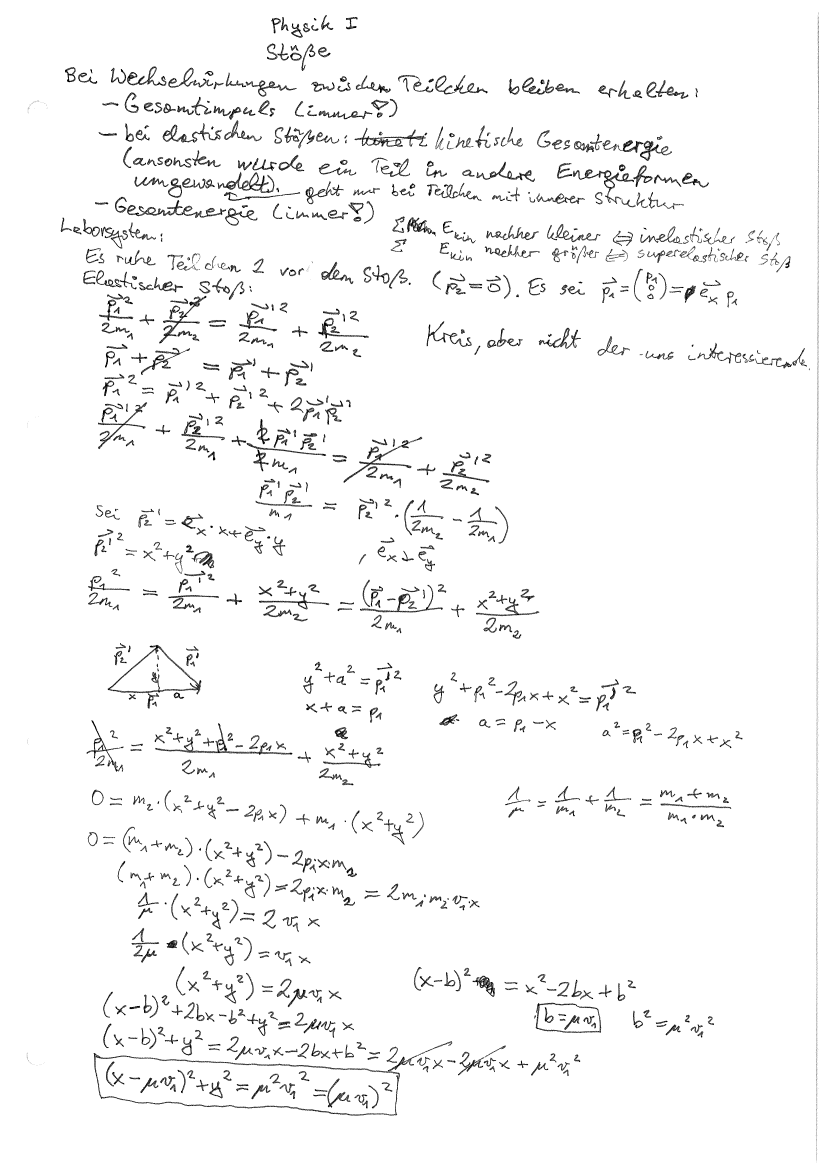 Physik I
Stöße
Bei Wechselwirkungen zwischen Teilchen bleiben erhalten:
– Gesamtimpuls (immer!)
– bei elastischen Stößen: kineti kinetische Gesamtenergie
(ansonsten würde ein Teil in andere Energieformen
umgewandelt). geht nur bei Teilchen mit innerer Struktur
– Gesamtenergie (immer!)
Σ E_kin nachher kleiner ⇔ inelastischer Stoß
Σ E_kin nachher größer ⇔ superelastischer Stoß
Laborsystem:
Es ruhe Teilchen 2 vor dem Stoß. (p⃗₂ = 0⃗). Es sei p⃗₁ = (p₁ 0 0) = e⃗ₓ p₁
Elastischer Stoß:
p⃗₁²/2m₁ + p⃗₂²/2m₂ = p⃗₁'²/2m₁ + p⃗₂'²/2m₂
Kreis, aber nicht der uns interessierende.
p⃗₁ + p⃗₂ = p⃗₁' + p⃗₂'
p⃗₁² = p⃗₁'² + p⃗₂'² + 2p⃗₁'p⃗₂'
p⃗₁'²/2m₁ + p⃗₂'²/2m₁ + 2p⃗₁'p⃗₂'/2m₁ = p⃗₁'²/2m₁ + p⃗₂'²/2m₂
p⃗₁'p⃗₂'/m₁ = p⃗₂'²·(1/2m₂ − 1/2m₁)
Sei p⃗₂' = e⃗ₓ·x + e⃗_y·y
p⃗₂'² = x²+y² , e⃗ₓ ⊥ e⃗_y
p₁²/2m₁ = p⃗₁'²/2m₁ + (x²+y²)/2m₂ = (p⃗₁−p⃗₂')²/2m₁ + (x²+y²)/2m₂
p⃗₂' p⃗₁'
y
x p⃗₁ a
y²+a² = p⃗₁'² y²+p₁²−2p₁x+x² = p⃗₁'²
x+a = p₁ a = p₁−x a² = p₁²−2p₁x+x²
p₁²/2m₁ = (x²+y²+p₁²−2p₁x)/2m₁ + (x²+y²)/2m₂
0 = m₂·(x²+y²−2p₁x) + m₁·(x²+y²) 1/μ = 1/m₁ + 1/m₂ = (m₁+m₂)/(m₁·m₂)
0 = (m₁+m₂)·(x²+y²) − 2p₁x·m₂
(m₁+m₂)·(x²+y²) = 2p₁x·m₂ = 2m₁m₂v₁x
1/μ·(x²+y²) = 2v₁x
1/2μ (x²+y²) = v₁x
(x²+y²) = 2μv₁x (x−b)² = x²−2bx+b²
(x−b)²+2bx−b²+y² = 2μv₁x b=μv₁ b² = μ²v₁²
(x−b)²+y² = 2μv₁x−2bx+b² = 2μv₁x−2μv₁x + μ²v₁²
(x−μv₁)²+y² = μ²v₁² = (μv₁)²